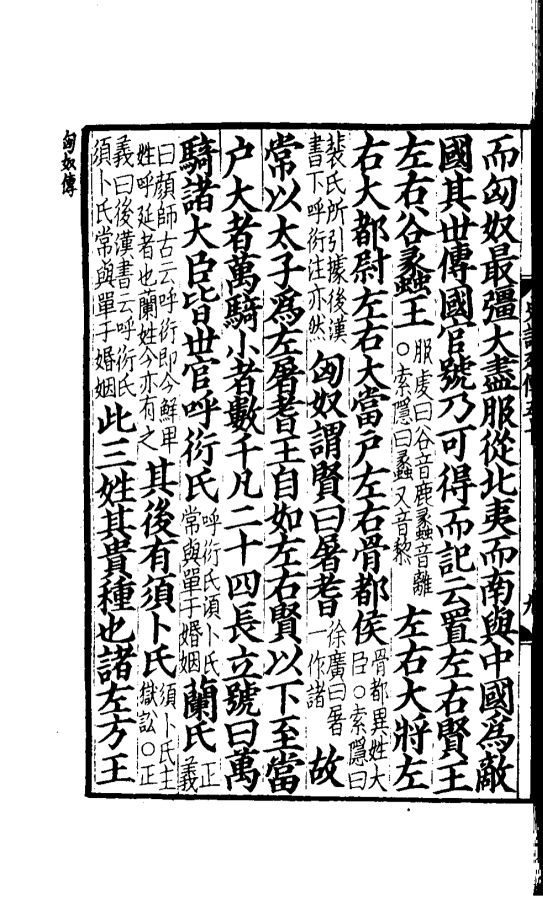 而匈奴最彊大盡服從北夷而南與中國爲敵
國其世傳國官號乃可得而記云置左右賢王
左右谷蠡王
服虔曰谷音鹿蠡音離
○索隱曰蠡又音黎
左右大將左
右大都尉左右大當戶左右骨都侯
骨都異姓大
臣○索隱曰
裴氏所引據後漢
書下呼衍注亦然
匈奴謂賢曰屠耆
徐廣曰屠
一作諸
故
常以太子爲左屠耆王自如左右賢以下至當
户大者萬騎小者數千凡二十四長立號曰萬
騎諸大臣皆世官呼衍氏
呼衍氏須卜氏
常與單于婚姻
蘭氏
正
義
曰顔師古云呼衍即今鮮卑
姓呼延者也蘭姓今亦有之
其後有須卜氏
須卜氏主
獄訟○正
義曰後漢書云呼衍氏
須卜氏常與單于婚姻
此三姓其貴種也諸左方王
匈奴傳